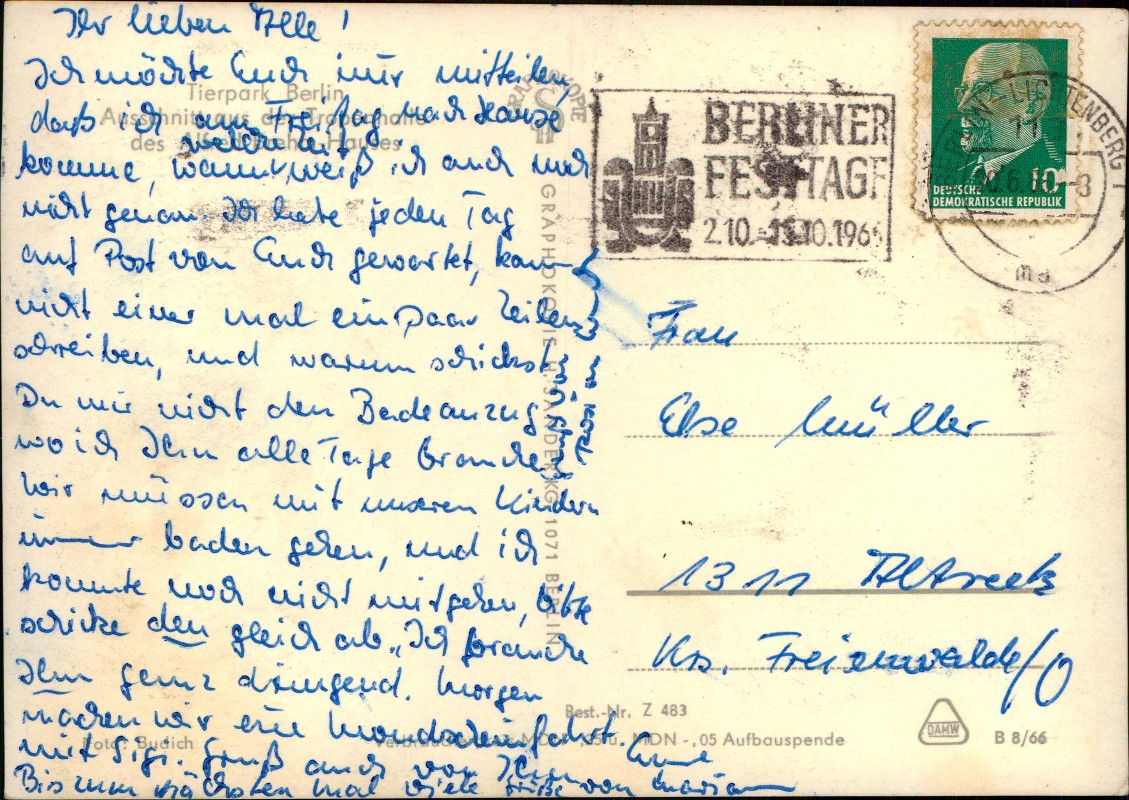 Ihr lieben Alle!
Ich möchte Euch nur mitteilen,
daß ich am Freitag nach Hause
komme, wann weiß ich auch noch
nicht genau. Ich habe jeden Tag
auf Post von Euch gewartet, kann
nicht einer mal ein paar Zeilen
schreiben, und warum schickst
Du mir nicht den Badeanzug
wo ich Ihn alle Tage brauche
Wir müssen mit unseren Kindern
immer baden gehen, und ich
konnte noch nicht mitgehen, bitte
schicke den gleich ab, Ich brauche
Ihn ganz dringend. Morgen
machen wir eine Mondscheinfahrt.
mit Sigi. Gruß auch von Ihm
Bis zum nächsten mal viele Grüße von
Tierpark Berlin
Ausschnitt aus der Tropenhalle
des Alfred-Brehm-Hauses
GRAPHOKOPIE H. SANDER KG, 1071 BERLIN
Foto: Budich
Best.-Nr. Z 483
MDN -,05 Aufbauspende
DAMW
B 8/66
BERLINER
FESTTAGE
2.10.-15.10.196
LICHTENBERG
DEUTSCHE
DEMOKRATISCHE REPUBLIK
10
Frau
Else Müller
1311 Altreetz
Krs. Freienwalde/O